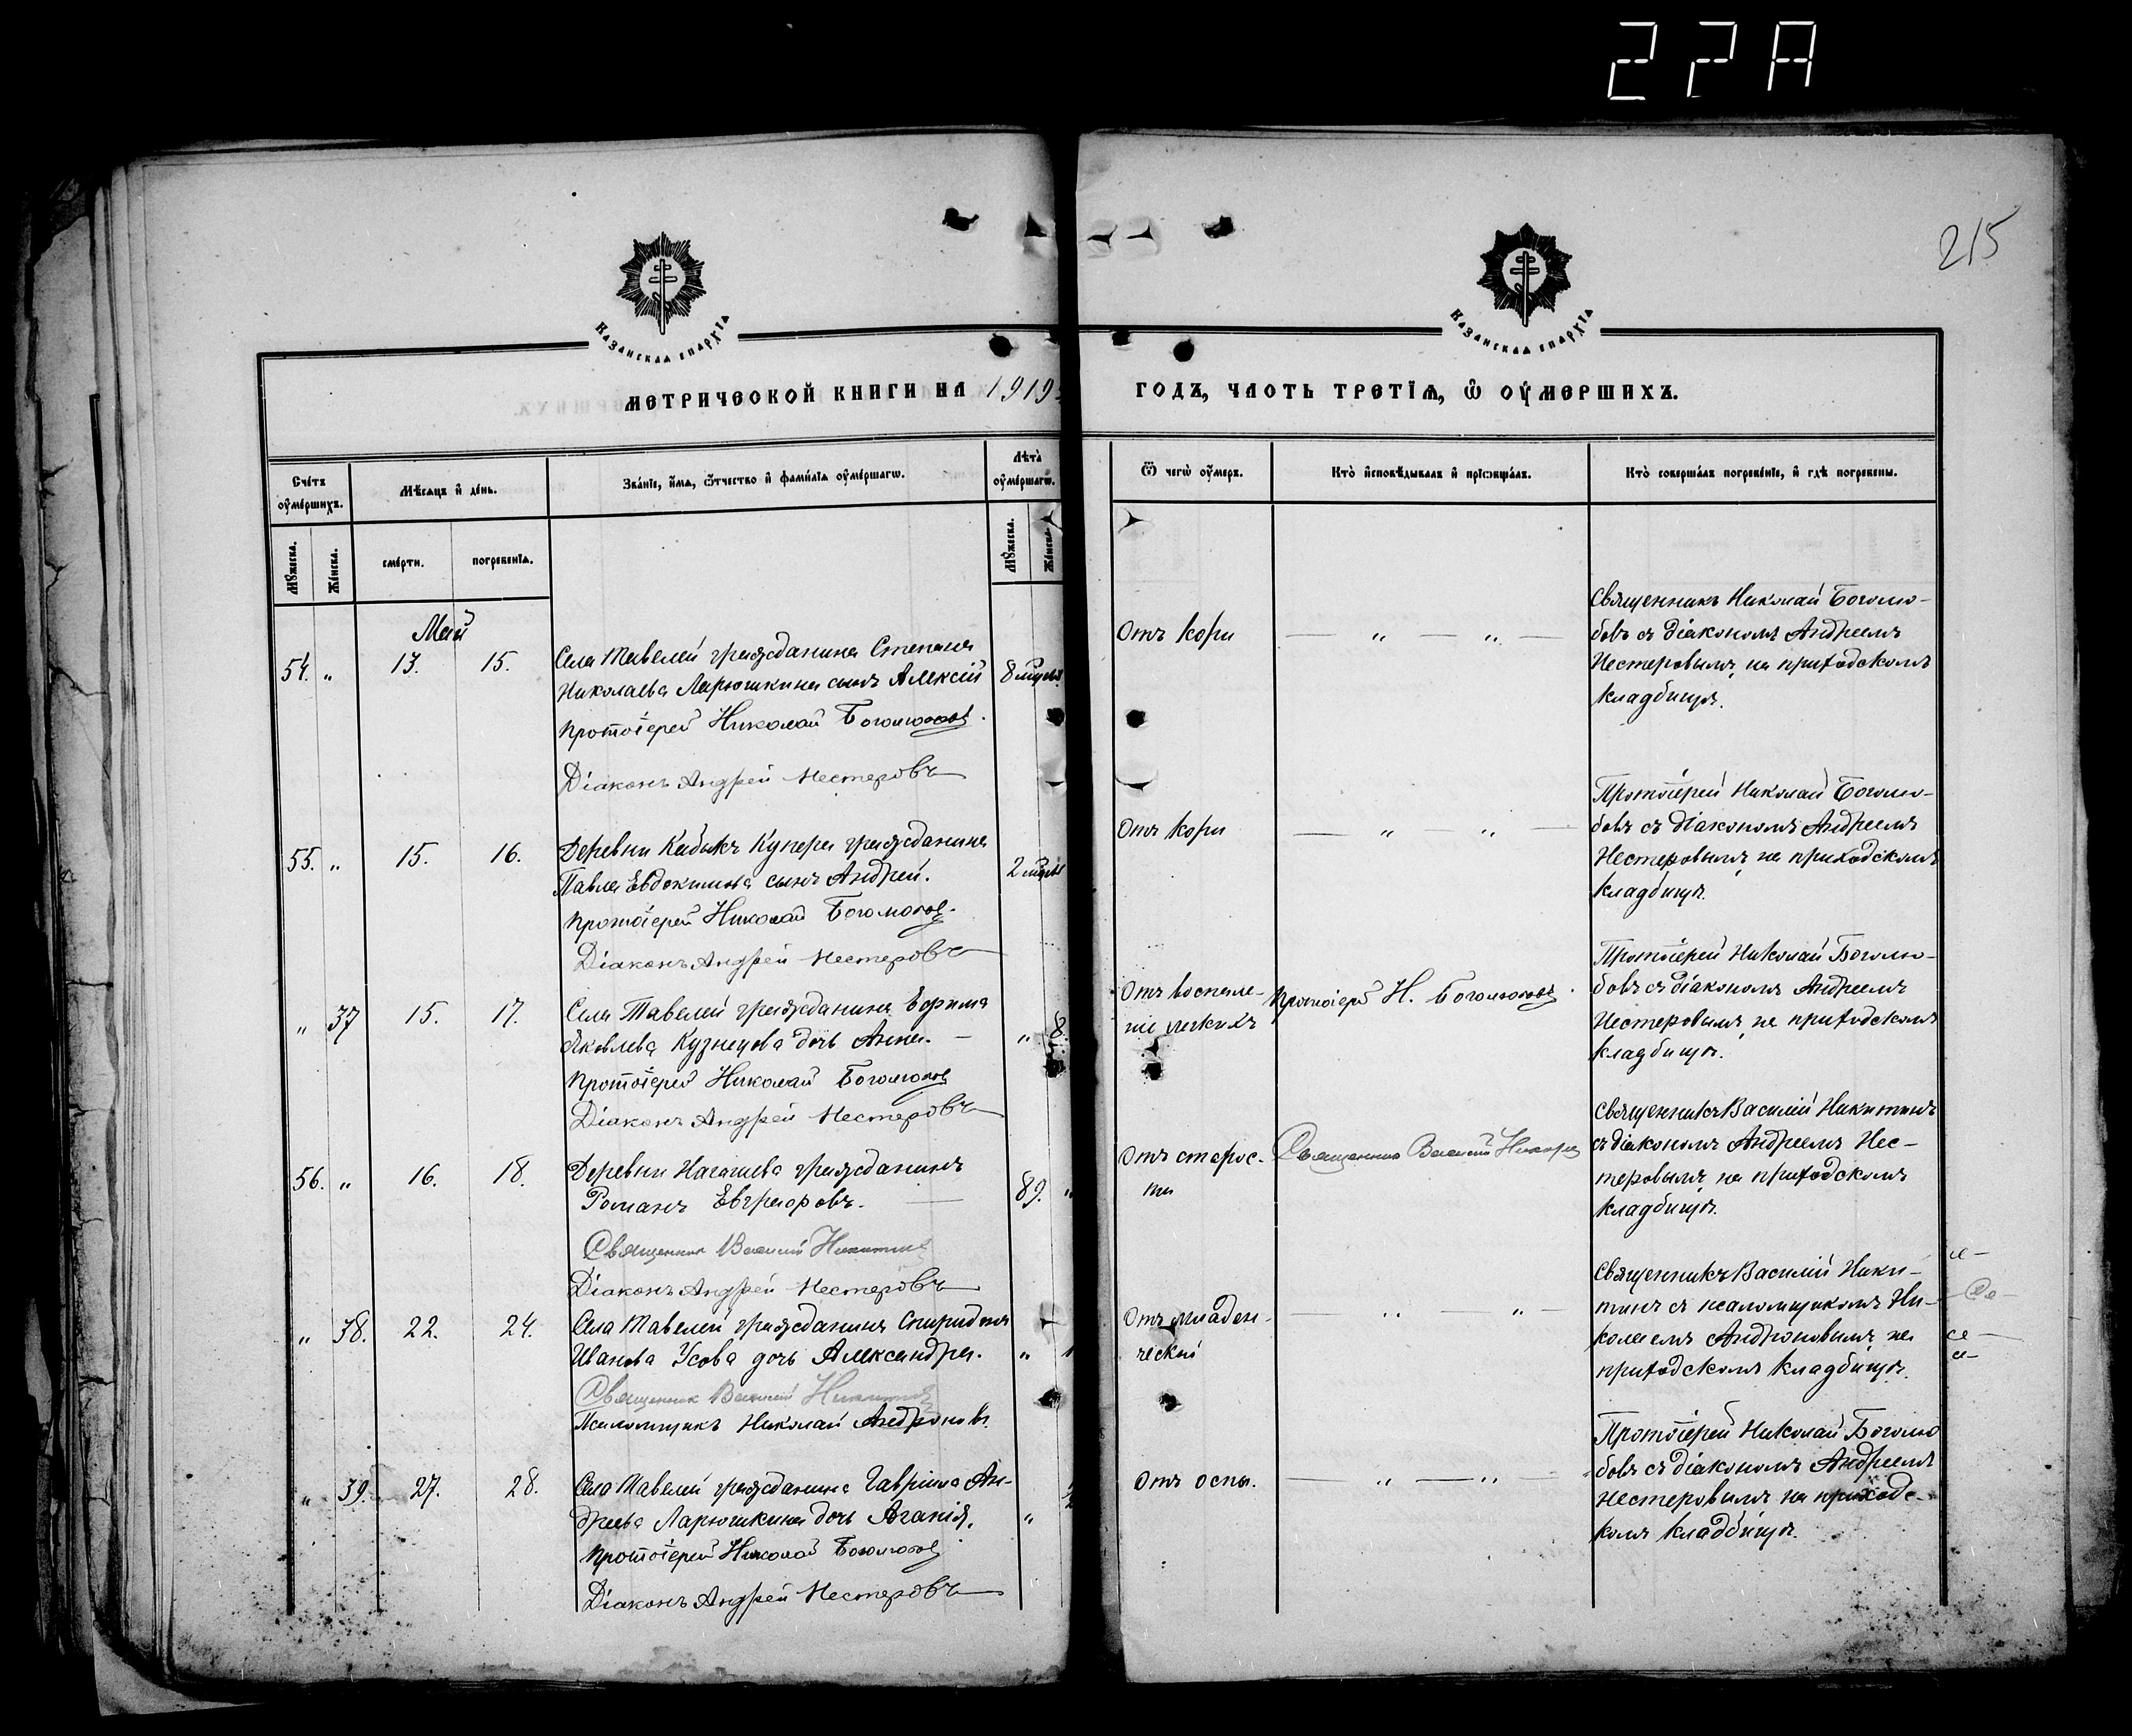 22A
215
КАЗАНСКАѦ ЕПАРХІѦ
КАЗАНСКАѦ ЕПАРХІѦ
МЕТРИЧЕСКОЙ КНИГИ НА 1919
ГОДЪ, ЧАСТЬ ТРЕТІѦ, Ѿ ОУМЕРШИХЪ.
Счетъ оумершихъ.
Мѣсяцъ и день.
Званіе, имя, ѡтчество и фамиліа оумершагѡ.
Лѣта оумершагѡ.
Ѿ чегѡ оумеръ.
Кто исповѣдывалъ и пріѡбщалъ.
Кто совершалъ погребеніе, и гдѣ погребены.
Мꙋжеска.
Женска.
смерти.
погребенія.
Мꙋжеска.
Женска
Май
54. „ 13. 15.
Села Тавелей гражданина Степана
Николаева Ларюшкина сынъ Алексій
8
Протоіерей Николай Боголюбов.
Діаконъ Андрей Нестеровъ
Отъ кори — „ — „ —
Священникъ Николай Боголю-
бовъ съ діакономъ Андреемъ
Нестеровымъ на приходскомъ
кладбищѣ.
55. „ 15. 16.
Деревни Кабыкъ Купера гражданина
Павла Евдокимова сынъ Андрей.
2
Протоіерей Николай Боголюбов.
Діаконъ Андрей Нестеровъ
Отъ кори — „ — „ —
Протоіерей Николай Боголю-
бовъ съ діакономъ Андреемъ
Нестеровымъ на приходскомъ
кладбищѣ.
„ 37 15. 17.
Села Тавелей гражданина Ефима
Яковлева Кузнецова дочь Анна. —
„ 8.
Протоіерей Николай Боголюбов
Діаконъ Андрей Нестеровъ
Отъ воспале-
ніе легкихъ
Протоіерей Н. Боголюбовъ.
Протоіерей Николай Боголю-
бовъ съ діакономъ Андреемъ
Нестеровымъ на приходскомъ
кладбищѣ.
56. „ 16. 18.
Деревни Нагашева гражданинъ
Романъ Евграфовъ.
89. „
Священник Василій Никитин
Діаконъ Андрей Нестеровъ
Отъ старос-
ти
Священник Василій Никитин
Священникъ Василій Никитинъ
съ діакономъ Андреемъ Нес-
теровымъ на приходскомъ
кладбищѣ.
„ 38. 22. 24.
Села Тавелей гражданина Спиридона
Иванова Усова дочь Александра.
„ 1
Священник Василій Никитин
Псаломщикъ Николай Андроновъ.
Отъ младен-
ческой
— „ — „ —
Священникъ Василій Ники-
тинъ съ псаломщикомъ Ни-
колаемъ Андроновымъ на
приходскомъ кладбищѣ.
„ 39. 27. 28.
Села Тавелей гражданина Гавріила Ан-
дреева Ларюшкина дочь Агапія.
„
Протоіерей Николай Боголюбов
Діаконъ Андрей Нестеровъ
Отъ оспы. — „ — „ —
Протоіерей Николай Боголю
бовъ съ діакономъ Андреемъ
Нестеровымъ на приходс-
комъ кладбищѣ.